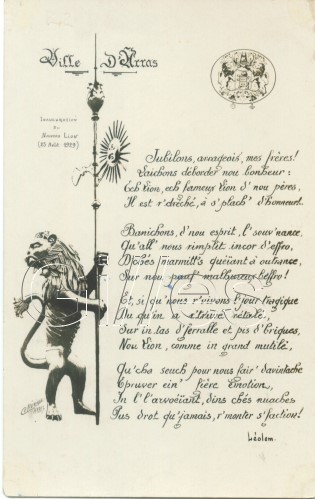 Ville D'Arras
Inauguration
du
Nouveau Lion
(15 Août 1929)
Jubilons, arrageois, mes frères!
Laichons déborder nou bonheur:
Ech Lion, ech fameux Lion d'nou pères,
Il est r'dréché, à s'plach' d'honneur!
Banichons, d'nou esprit, l'souv'nance,
Qu'all' nous rimplit incor d'effro,
D'chés marmitt's quivant à outrance,
Sur nou pauf' malheureux beffro!
Et, si qu'nous r'vivons l'jour tragique
Du qu'in a r'trouvé
Sur in tas d'ferralle et pis d'briques,
Nou Lion, comme in grand mutilé,
Qu'cha seuch pour nous fair' davintache
Epruver ein' fière émotion,
In l'l'arvoëiant, dins chés nuaches
Pus drot qu'jamais, r'monter s'faction!
Léolem.